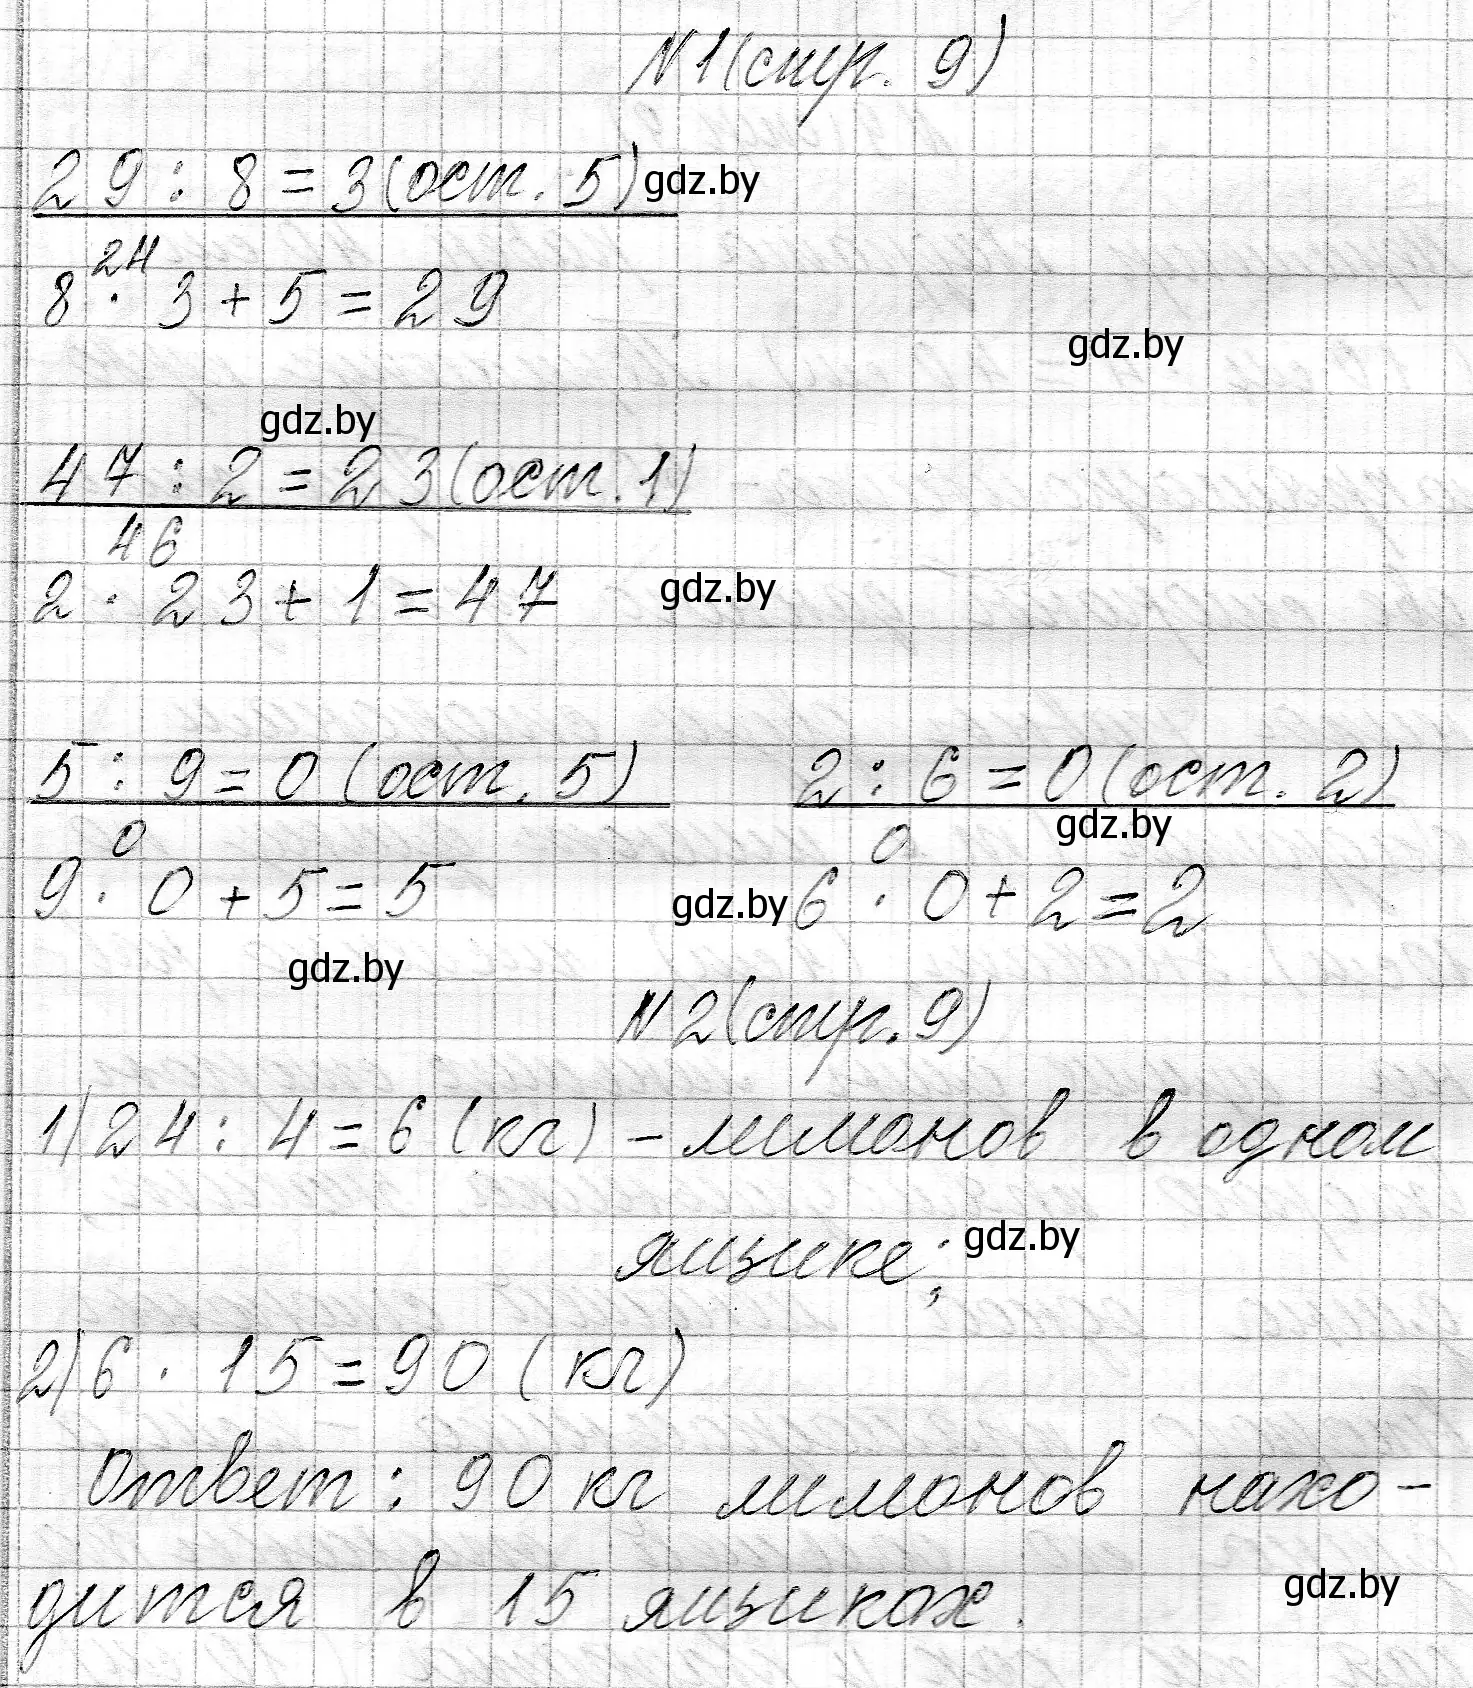 №1(стр. 9)
29 : 8 = 3(ост. 5) gdz.by
24
8 · 3 + 5 = 29
gdz.by
gdz.by
47 : 2 = 23(ост. 1)
46
2 · 23 + 1 = 47 gdz.by
5 : 9 = 0 (ост. 5) 2 : 6 = 0 (ост. 2)
0 0 gdz.by
9 · 0 + 5 = 5 gdz.by 6 · 0 + 2 = 2
gdz.by
№2(стр. 9)
1) 24 : 4 = 6 (кг) – лимонов в одном
ящике; gdz.by
2) 6 · 15 = 90 (кг)
Ответ: 90 кг лимонов нахо-
дится в 15 ящиках.
gdz.by